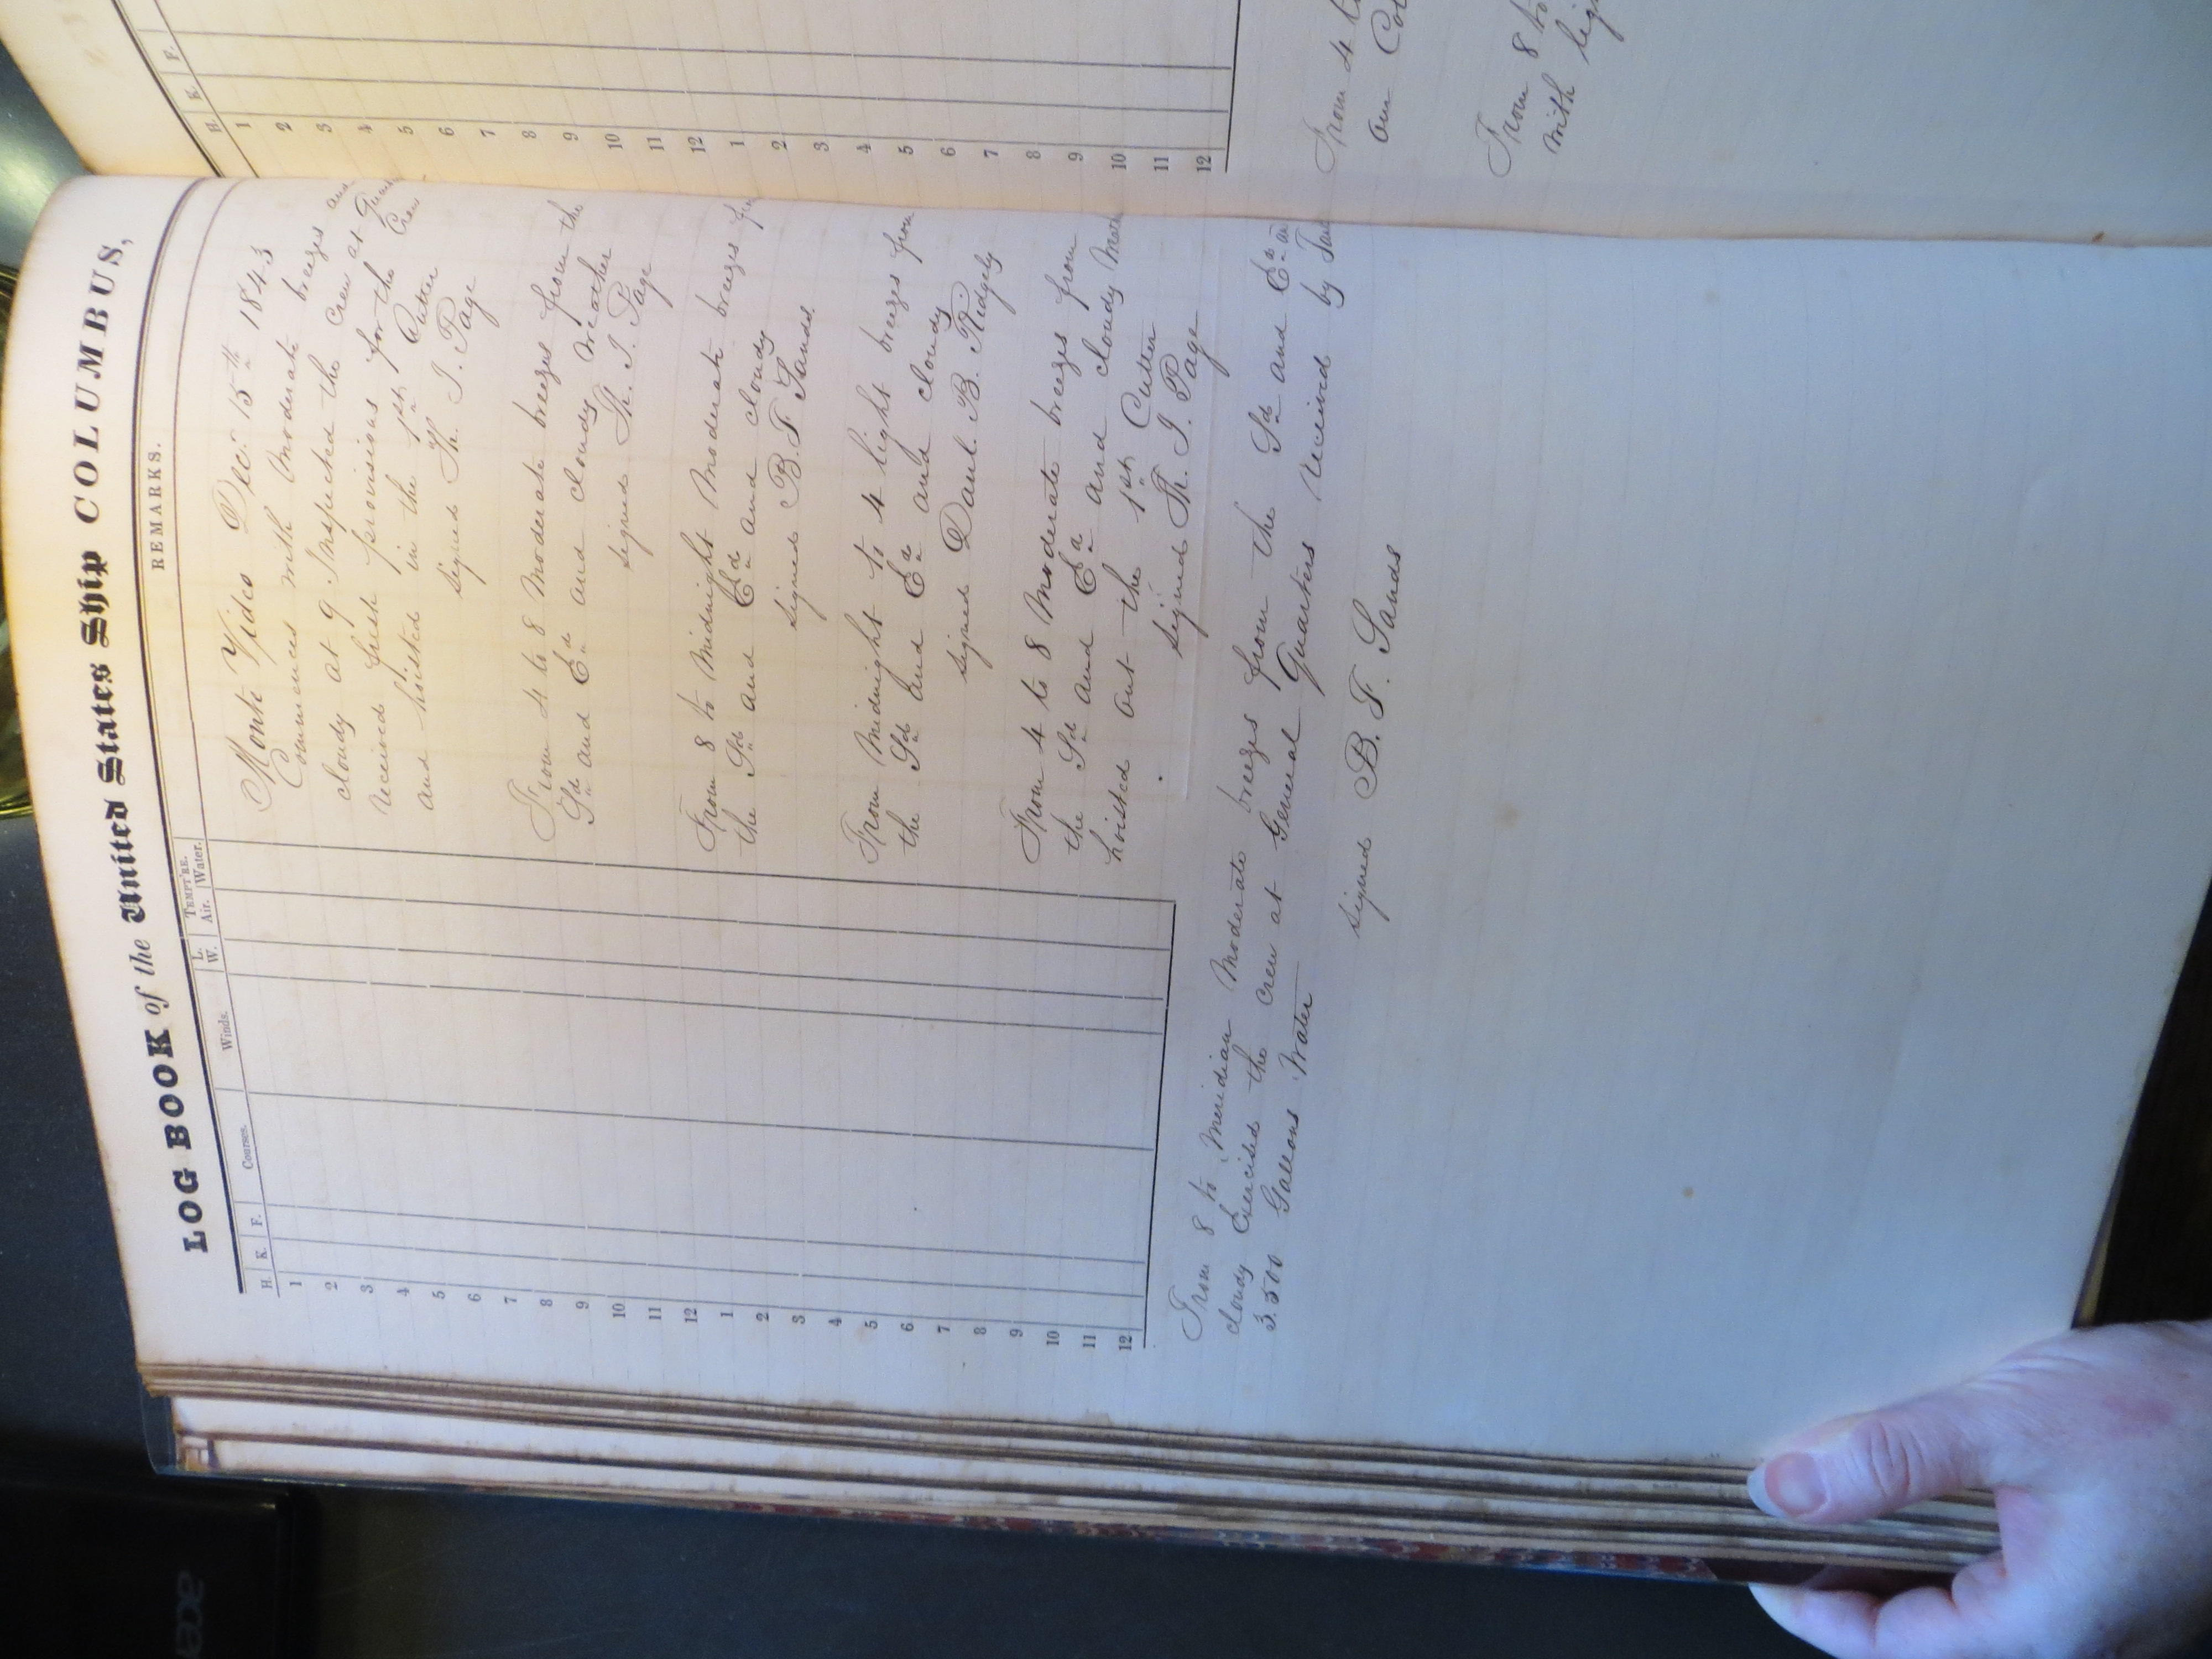 LOG BOOK of the United States Ship COLUMBUS,
H. K. F. Courses. Winds. L. W. TEMPT'RE. Air. Water. REMARKS.
1
2
3
4
5
6
7
8
9
10
11
12
1
2
3
4
5
6
7
8
9
10
11
12
Monte Video Dec: 15th 1843
Commences with moderate breezes and
cloudy at 9 Inspected the Crew at
received fresh provisions for the Crew
and hoisted in the 1st Cutter
signed Th. J. Page
From 4 to 8 Moderate breezes from the
Sd and Ed and cloudy weather
signed Th. J. Page
From 8 to Midnight Moderate breezes
the Sd and Ed and cloudy
signed B. F. Sands.
From Midnight to 4 light breezes from
the Sd and Ed and cloudy
signed Danl. B. Ridgely
From 4 to 8 Moderate breezes from
the Sd and Ed and cloudy
hoisted out the 1st Cutter
signed Th. J. Page
From 8 to Meridian Moderate breezes from the Sd and Ed
cloudy Exercised the Crew at General Quarters received by
3.500 Gallons Water
signed B. F. Sands
H. K. F.
1
2
3
4
5
6
7
8
9
10
11
12
1
2
3
4
5
6
7
8
9
10
11
12
From 4
From 8 to
with
acer